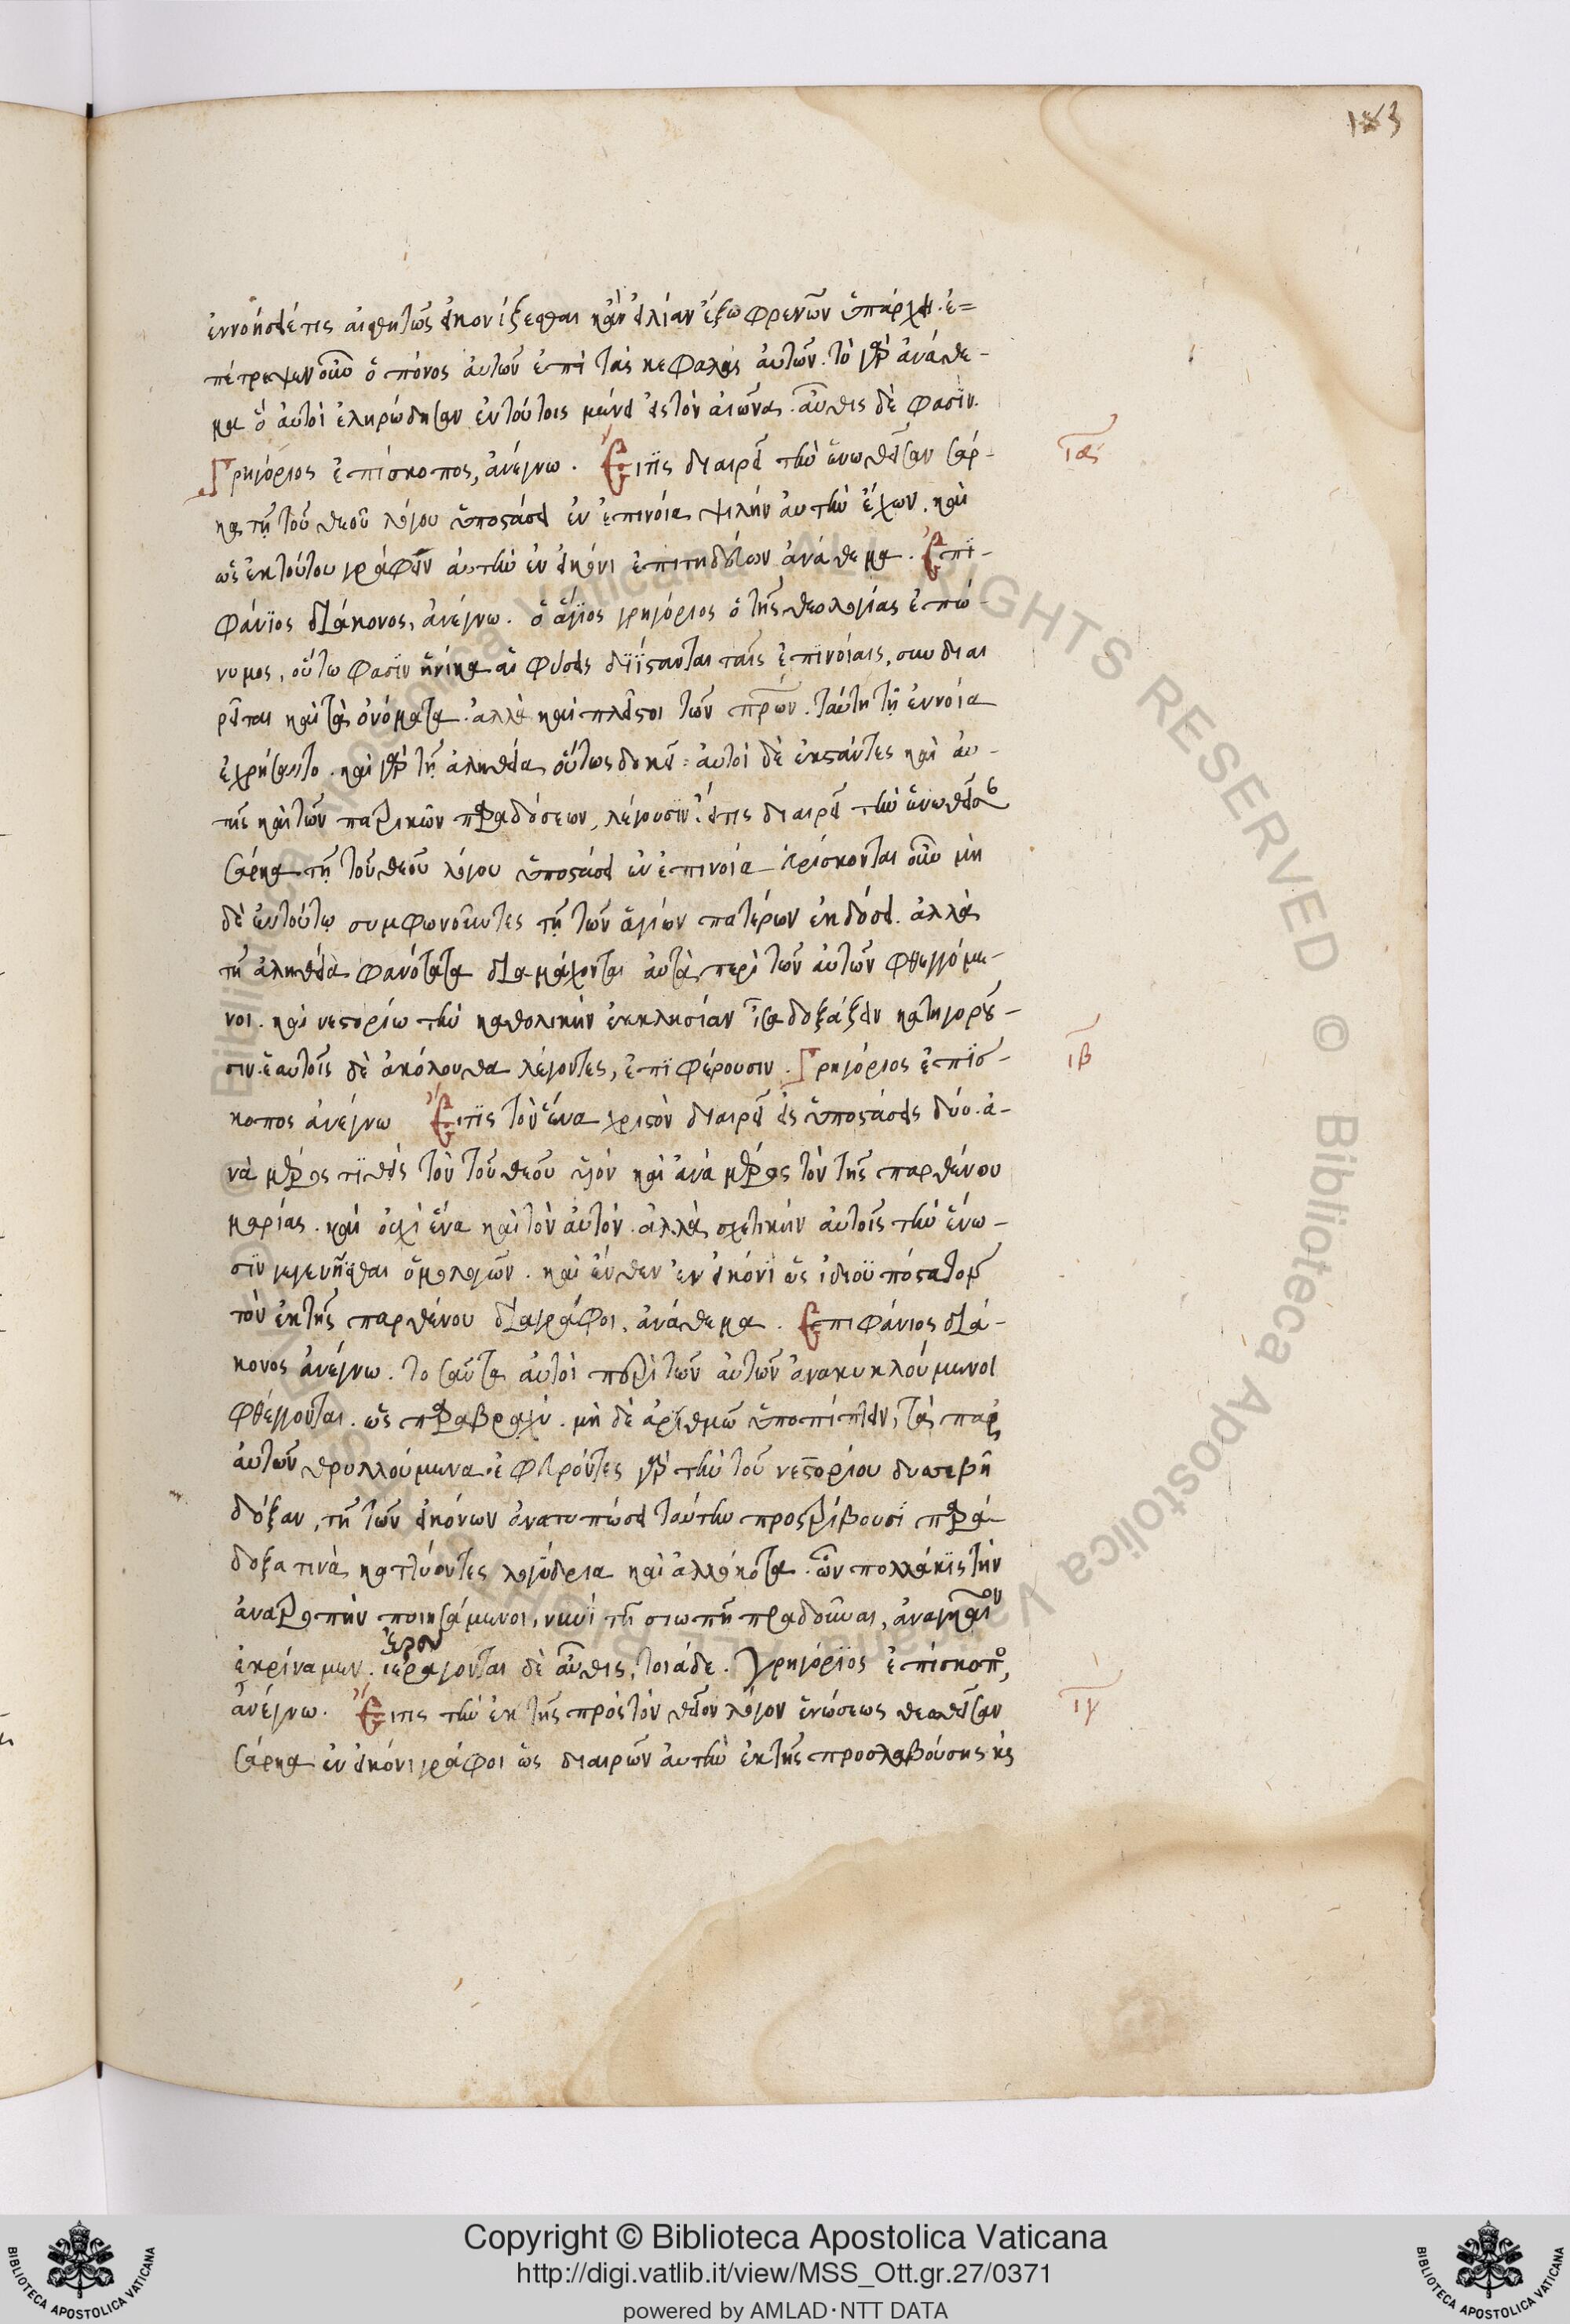 183
ἐννοήσει τις αἰσθητῶς εἰκονίζεσθαι κἂν εἰ λίαν ἔξω φρενῶν ὑπάρχει. ἐ=
πέτρεψεν οὖν ὁ πόνος αὐτῶν ἐπὶ τὰς κεφαλὰς αὐτῶν. τὸ γὰρ ἀνάθε-
μα ὃ αὐτοὶ ἐκληρώθησαν ἐν τούτοις μένει εἰς τὸν αἰῶνα. αὖθις δὲ φασΐν.
Γρηγόριος ἐπίσκοπος, ἀνέγνω. Εἴ τϊς διαιρεῖ τὴν ἑνωθεῖσαν σάρ-
ια΄
κα τῇ τοῦ θεοῦ λόγου ὑποστάσει ἐν ἐπινοία ψιλὴν αὐτὴν ἔχων. καὶ
ὡς ἐκ τούτου γράφειν αὐτὴν ἐν εἰκόνι ἐπιτηδεύων ἀνάθεμα. Ἐπϊ-
φάνϊος διάκονος, ἀνέγνω. ὁ ἅγϊος γρηγόριος ὁ τῆς θεολογίας ἐπώ-
νυμος, οὕτω φασΐν ἡνίκα αἱ φύσεις διΐστανται ταῖς ἐπϊνοίαις, συνδιαι
ρεῖται καὶ τὰ ὀνόματα. ἀλλὰ καὶ πλεῖστοι τῶν πρων. ταύτη τῇ ἐννοία
ἐχρήσαντο. καὶ γὰρ τῇ ἀληθεία οὕτως δοκεῖ: αὐτοὶ δὲ ἐκστάντες καὶ αὐ-
τῆς καὶ τῶν πατρικῶν παραδόσεων, λέγουσϊν. εἴ τις διαιρεῖ τὴν ἑνωθεῖσαν
σάρκα τῇ τοῦ θεοῦ λόγου ὑποστάσει ἐν ἐπινοία εὑρίσκονται οὖν μὴ
δὲ ἐν τούτω συμφωνοῦντες τῇ τῶν ἁγίων πατέρων ἐκδόσει. ἀλλὰ
τῇ ἀληθεία φανότατα διαμάχονται αὐτὰ περὶ τῶν αὐτῶν φθεγγόμε-
νοι. καὶ νεστορίω τὴν καθολικὴν ἐκκλησίαν ἶσα δοξάζειν κατηγοροῦ-
σιν. ἑαυτοῖς δὲ ἀκόλουθα λέγοντες, ἐπϊφέρουσιν. Γρηγόριος ἐπϊσ-
ιβ
κοπος ἀνέγνω Εἴ τϊς τὸν ἕνα χριστὸν διαιρεῖ εἰς ὑποστάσεις δύο. ἀ-
νὰ μέρος τϊθεὶς τὸν τοῦ θεοῦ υἱὸν καὶ ἀνὰ μέρος τὸν τῆς παρθένου
μαρίας. καὶ οὐχὶ ἕνα καὶ τὸν αὐτόν. ἀλλὰ σχετικὴν αὐτοῖς τὴν ἕνω-
σϊν γεγενῆσθαι ὁμολογῶν. καὶ ἔνθεν ἐν εἰκόνϊ ὡς ἰδιοϋπόστατον
τὸν ἐκ τῆς παρθένου διαγράφοι, ἀνάθεμα. Ἐπιφάνιος διά-
κονος ἀνέγνω. τοσαῦτα αὐτοὶ περὶ τῶν αὐτῶν ἀνακυκλούμενοι
φθέγγονται. ὡς παραβραχὺ. μὴ δὲ ἀρϊθμῶ ὑποπίπτειν, τὰ παρ
αὐτῶν θρυλλούμενα. ἐκφέροντες γὰρ τὴν τοῦ νεστορίου δυσσεβῆ
δόξαν, τῇ τῶν εἰκόνων ἀνατυπώσει ταύτην προστρίβουσϊ παρά
δοξα τινὰ καττύοντες λογύδρια καὶ ἀλλόκοτα. ὧν πολλάκϊς τὴν
ἀνατροπὴν ποιησάμενοι, νυνὶ τῇ σιωπῇ παραδοῦναι, ἀναγκαῖον
ἐκρίναμεν. ἱεραγονται δὲ αὖθις, τοιάδε. Γρηγόρϊος ἐπίσκοπο,
ἀνέγνω. Εἴ τις τὴν ἐκ τῆς πρὸς τὸν θεῖον λόγον ἑνώσεως θεωθεῖσαν
ιγ
σάρκα ἐν εἰκόνι γράφοι ὡς διαιρῶν αὐτὴν ἐκ τῆς προσλαβούσης κ
© Biblioteca Apostolica Vaticana ALL RIGHTS RESERVED © Biblioteca Apostolica Vaticana ALL RIGHTS RESERVED
Copyright © Biblioteca Apostolica Vaticana
http://digi.vatlib.it/view/MSS_Ott.gr.27/0371
powered by AMLAD·NTT DATA
BIBLIOTECA APOSTOLICA VATICANA
BIBLIOTECA APOSTOLICA VATICANA